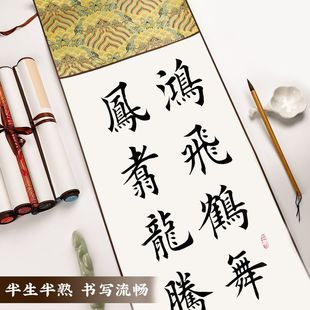 鴻飛鶴舞
鳳翥龍騰
半生半熟 书写流畅